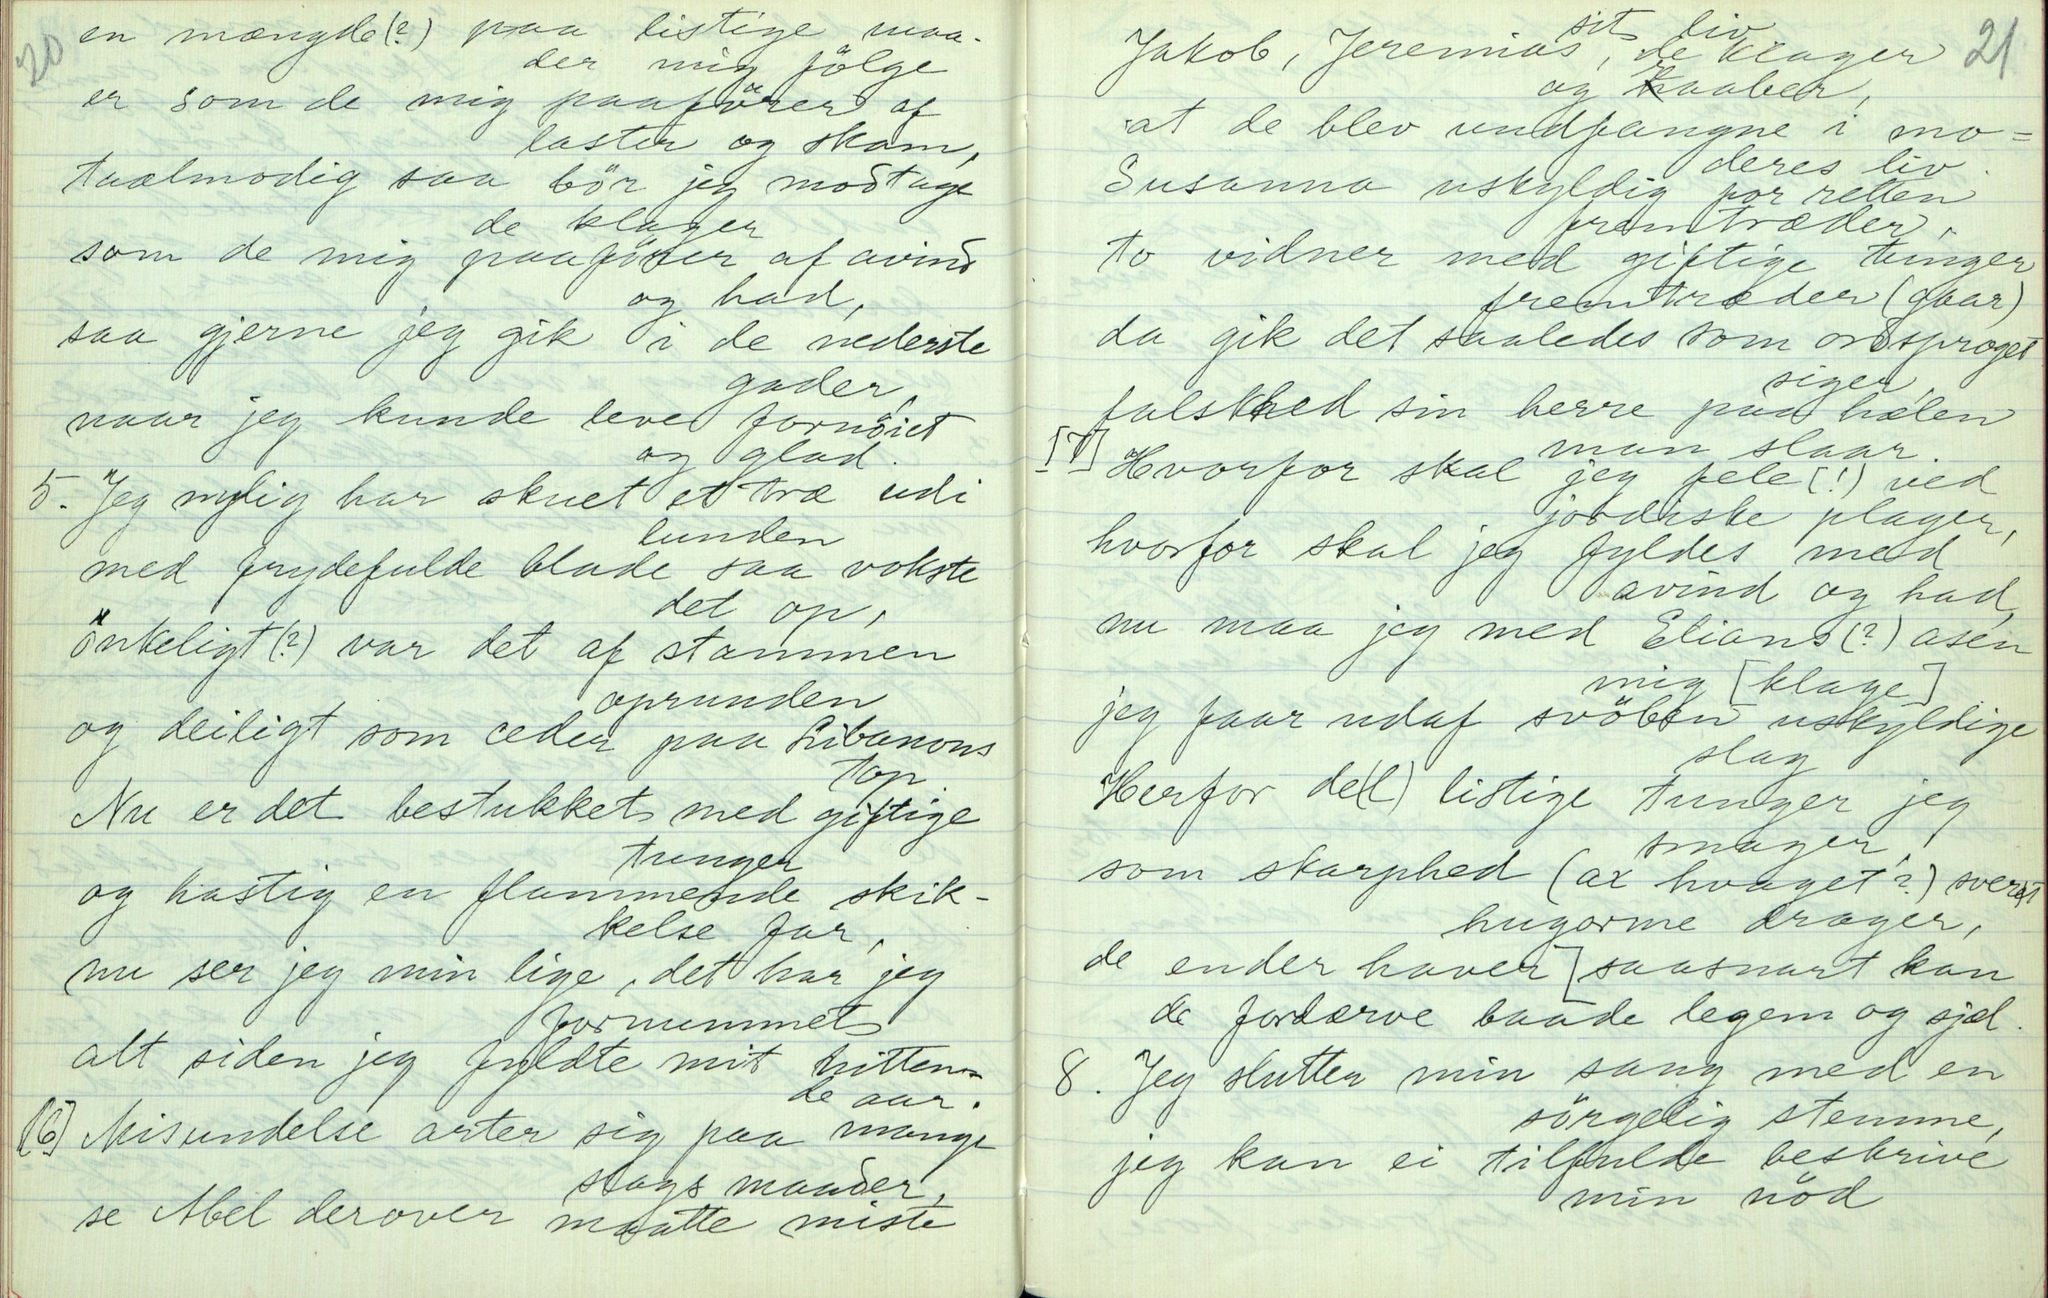 20
en mængde(?) paa listige maa-
der mig fölge
er som de mig paaförer af
laster og skam,
taalmodig saa bör jeg modtage
de klager
som de mig paaförer af avind
og had,
saa gjerne jeg gik i de nederste
gader,
naar jeg kunde leve fornöiet
og glad.
5. Jeg nylig har skuet et træ udi
lunden
med frydefulde blade saa vokste
det op,
önkeligt(?) var det af stammen
oprunden
og deiligt som ceder paa Libanons
top
Nu er det bestukket med giftige
tunger
og hastig en flammende skik-
kelse far,
nu ser jeg min lige, det har jeg
fornummet
alt siden jeg fyldte mit
de aar.
[6] Misundelse arter sig paa mange
slags maader,
se Abel derover maatte miste
21
sit liv
Jakob, Jeremias, de klager
og raaber,
at de blev undfangne i mo-
deres liv.
Susanna uskyldig for retten
fremtræder,
to vidner med giftige tunger
fremtræder (gaar)
da gik det saaledes som ordsproget
siger,
falskhed sin herre paa hælen
man slaar.
[7] Hvorfor skal jeg fele (!) ved
jordiske plager,
hvorfor skal jeg fyldes med
avind og had,
nu maa jeg med Elians(?) asen
mig [klage]
jeg faar udaf svöben uskyldige
slag
Herfor de(l) listige tunger jeg
smager,
som skarphed (ax hvaget?) sverdet
hugorme drager,
de ender haver [saasnart kan
de fordærve baade legem og sjæl.
8. Jeg slutter min sang med en
sörgelig stemme,
jeg kan ei tilfulde beskrive
min nöd